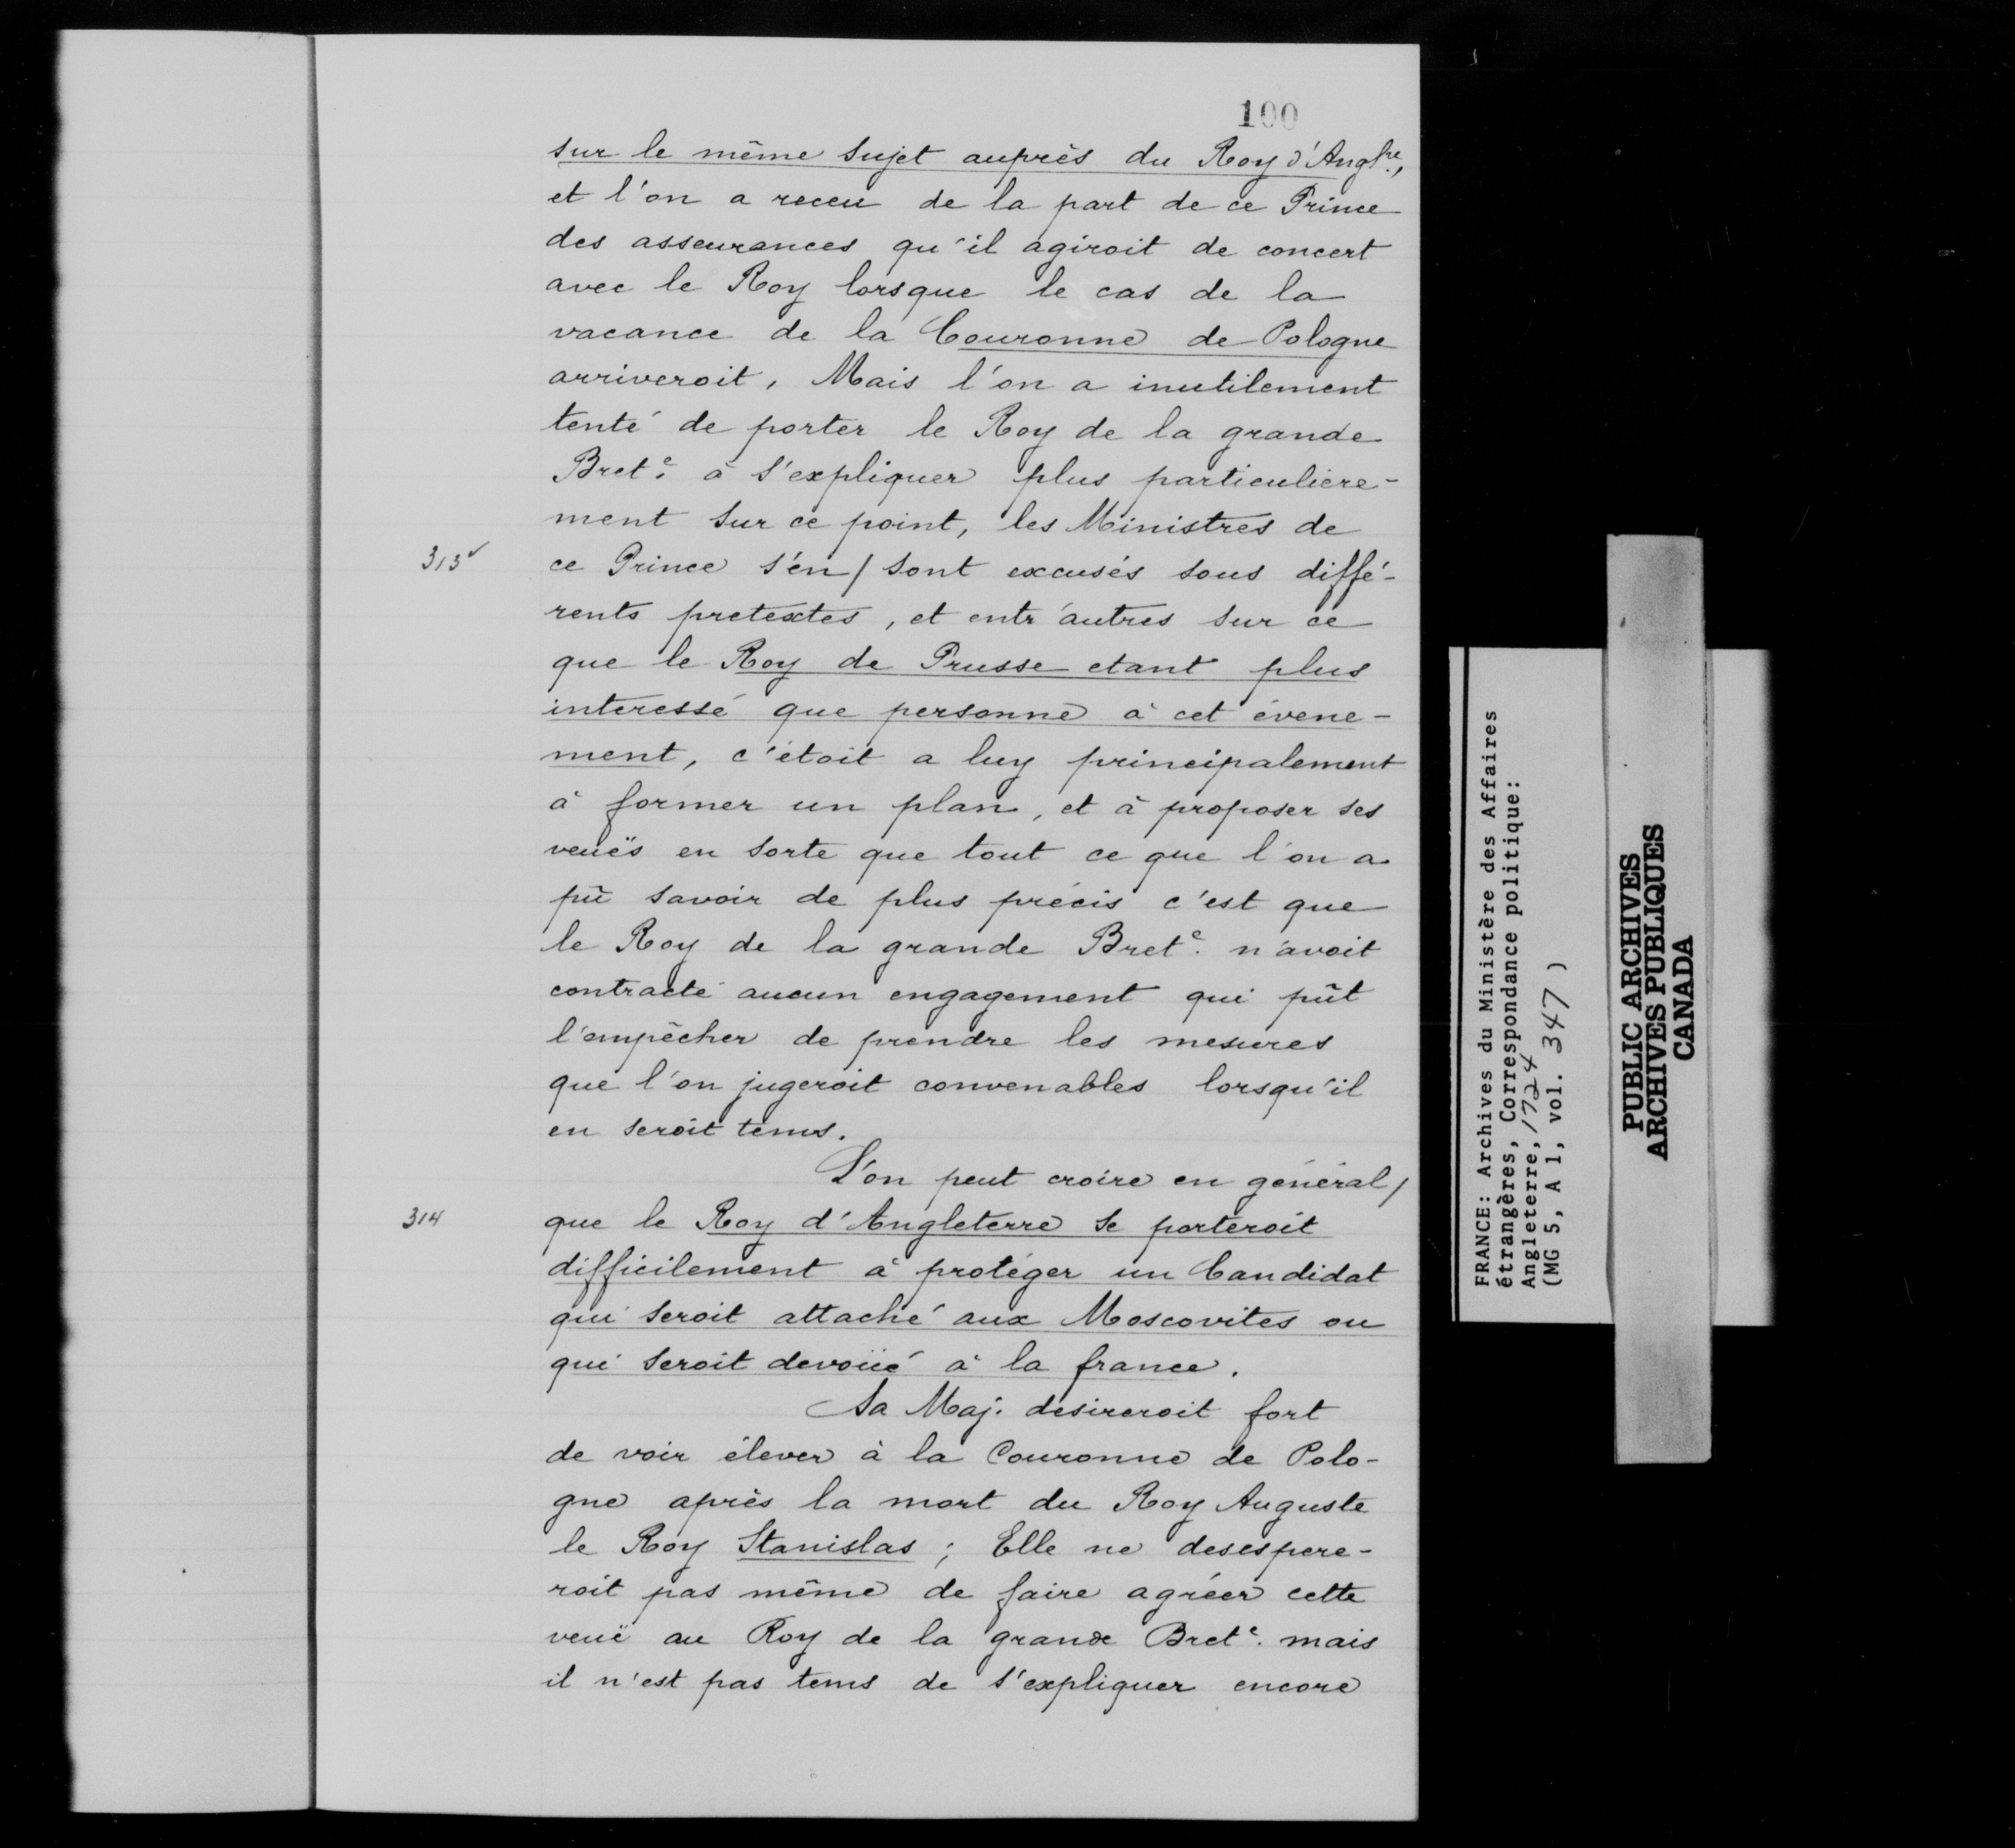 100
sur le même sujet auprès du Roy d'Anglre,
et l'on a receu de la part de ce Prince
des asseurances qu'il agiroit de concert
avec le Roy lorsque le cas de la
vacance de la Couronne de Pologne
arriveroit, Mais l'on a inutilement
tenté de porter le Roy de la grande
Brete. à s'expliquer plus particuliere-
ment sur ce point, les Ministres de
313v ce Prince s'en / sont excusés sous diffé-
rents pretextes, et entr'autres sur ce
que le Roy de Prusse etant plus
interessé que personne à cet évene-
ment, c'étoit a luy principalement
à former un plan, et à proposer ses
veuës en sorte que tout ce que l'on a
pû savoir de plus précis c'est que
le Roy de la grande Brete. n'avoit
contracté aucun engagement qui pût
l'empêcher de prendre les mesures
que l'on jugeroit convenables lorsqu'il
en seroit tems.
L'on peut croire en général /
314 que le Roy d'Angleterre se porteroit
difficilement à protéger un Candidat
qui seroit attaché aux Moscovites ou
qui seroit devoüé à la france.
Sa Maj. desireroit fort
de voir élever à la Couronne de Polo-
gne après la mort du Roy Auguste
le Roy Stanislas ; Elle ne desespere-
roit pas même de faire agréer cette
veuë au Roy de la grande Brete. mais
il n'est pas tems de s'expliquer encore
FRANCE: Archives du Ministère des Affaires
étrangères, Correspondance politique:
Angleterre, 1724
(MG 5, A 1, vol. 347 )
PUBLIC ARCHIVES
ARCHIVES PUBLIQUES
CANADA